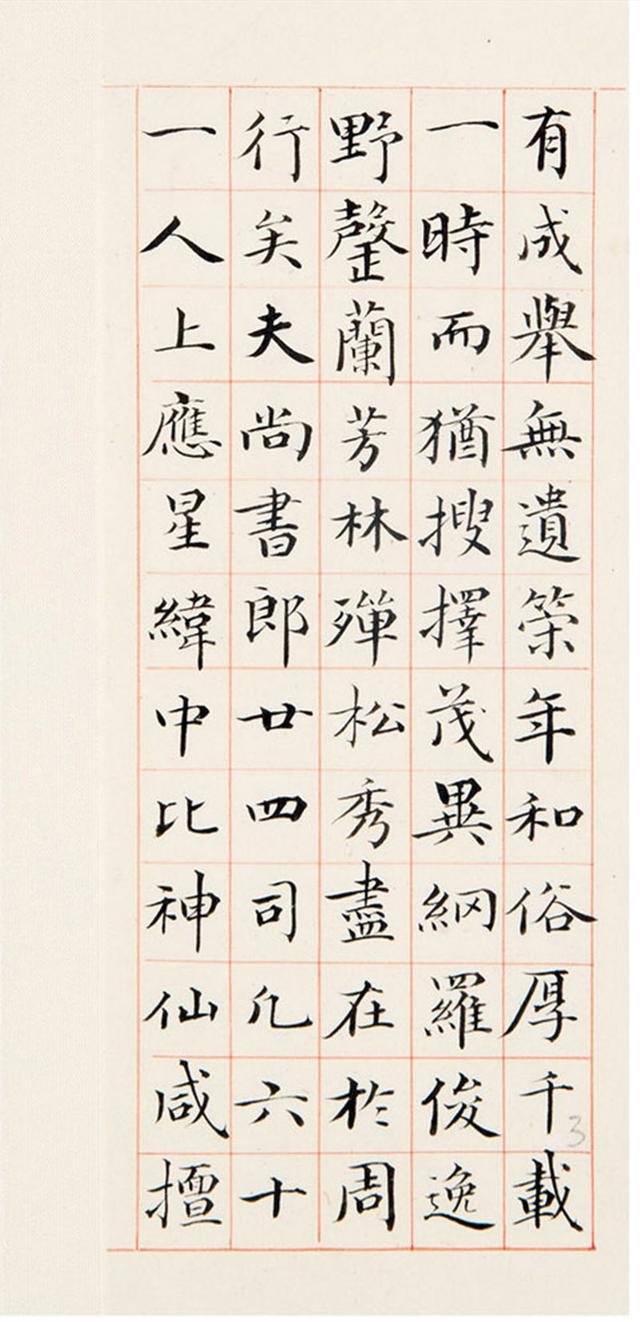 有成舉無遺筞年和俗厚千載
一時而猶搜擇茂異網羅俊逸
野罄蘭芳林殫松秀盡在於周
行矣夫尚書郎廿四司凡六十
一人上應星緯中比神仙咸擅
3